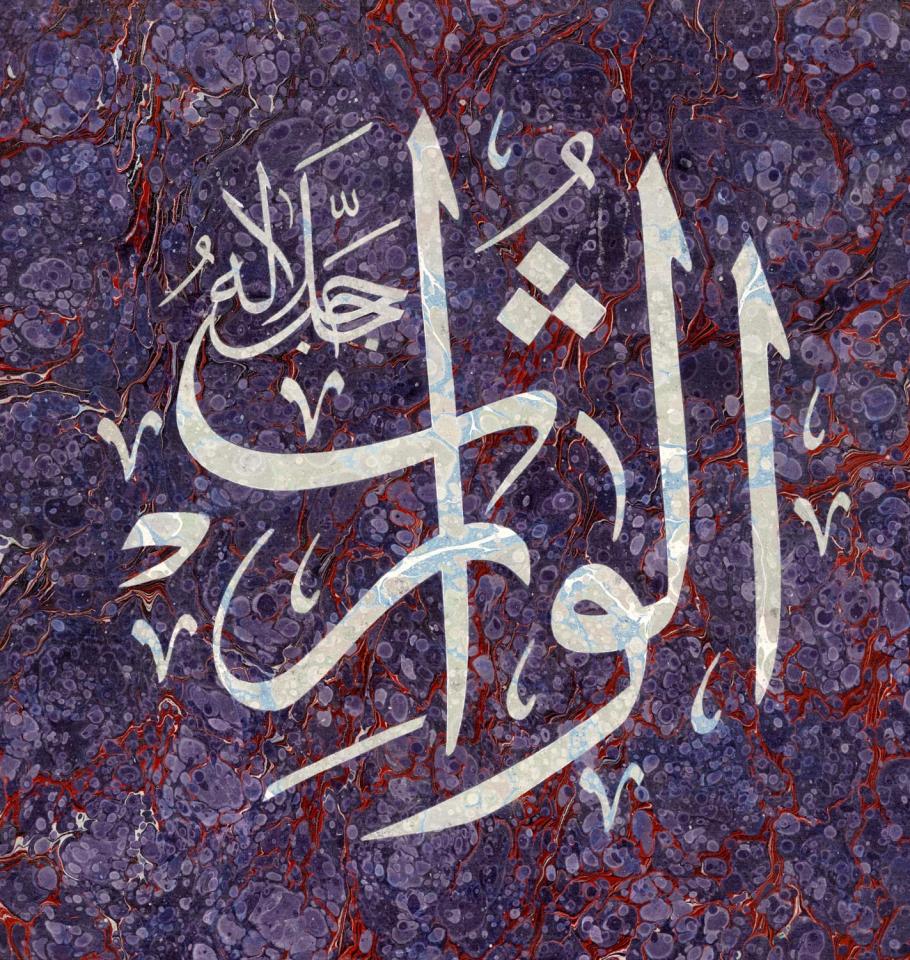 الوارثُ
جلّ جلاله